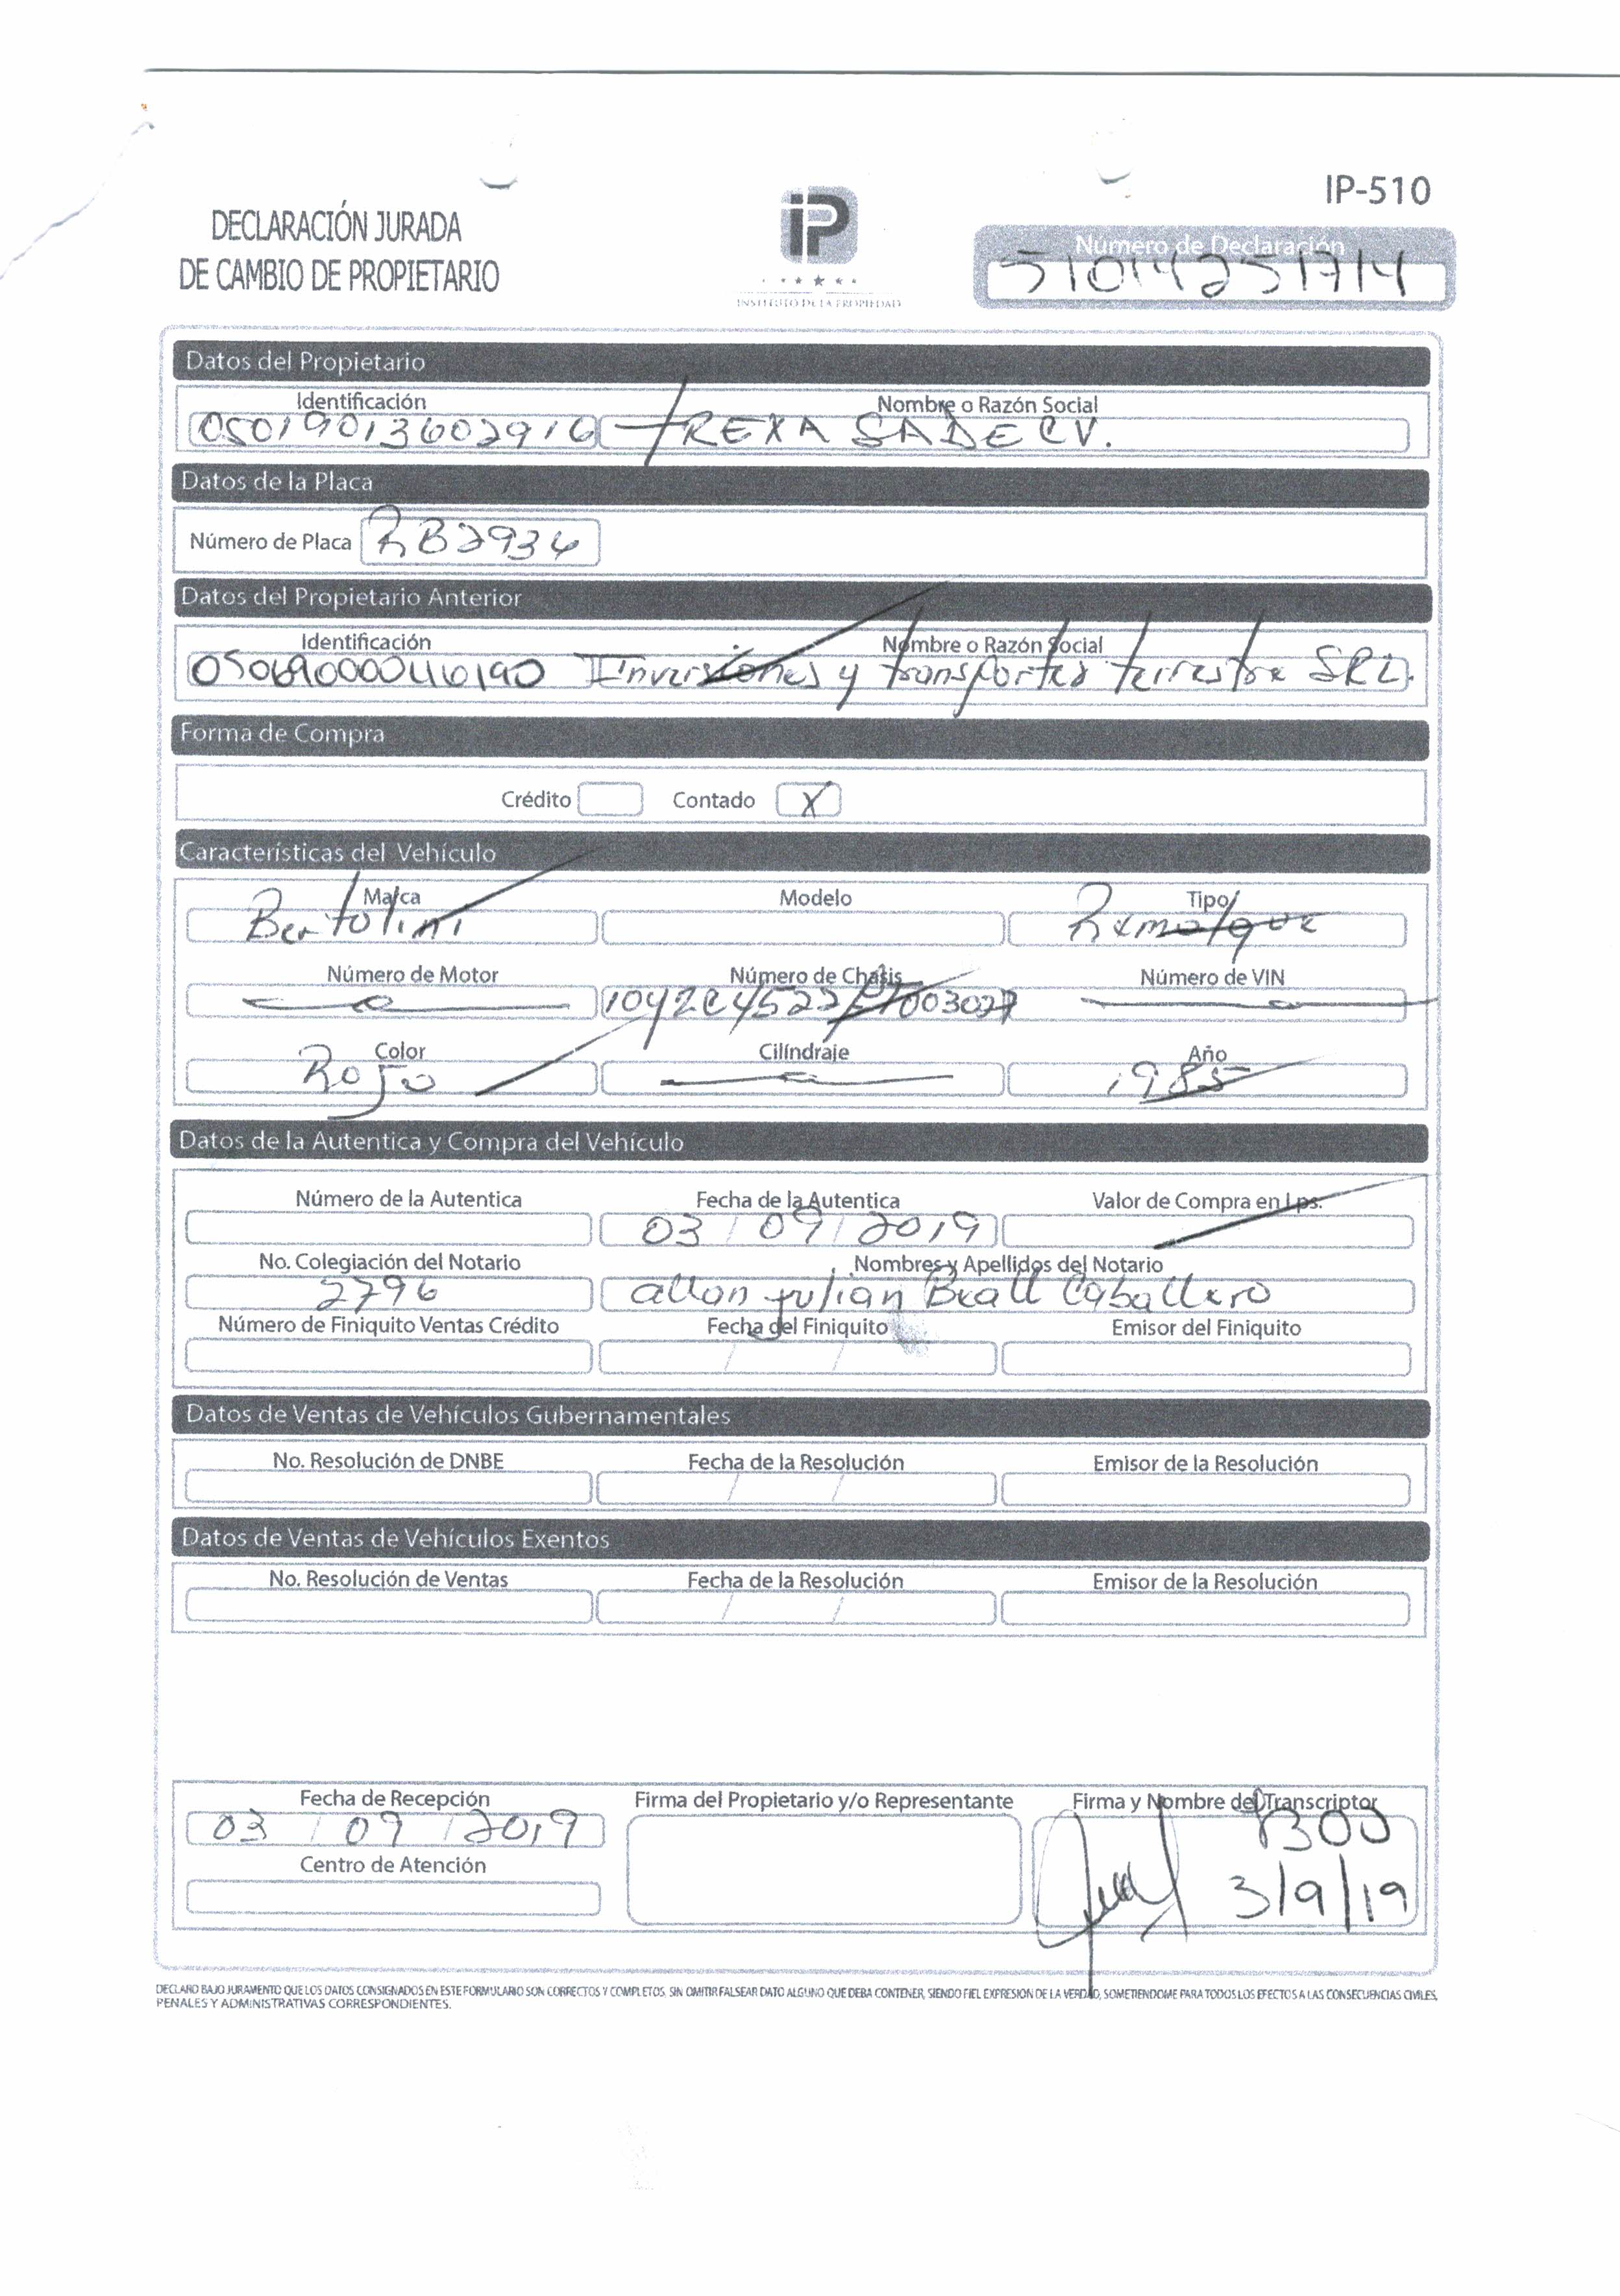 IP-510
DECLARACIÓN JURADA
DE CAMBIO DE PROPIETARIO
iP
INSTITUTO DE LA PROPIEDAD
Número de Declaración
51014251714
Datos del Propietario
Identificación Nombre o Razón Social
05019013602916 TREXA SA DE CV.
Datos de la Placa
Número de Placa RB2936
Datos del Propietario Anterior
Identificación Nombre o Razón Social
Inversiones y transportes terrestre SRL.
Forma de Compra
Crédito Contado X
Características del Vehículo
Marca Modelo Tipo
Bertolini Remolque
Número de Motor Número de Chasis Número de VIN
Color Cilíndraje Año
Rojo 1985
Datos de la Autentica y Compra del Vehículo
Número de la Autentica Fecha de la Autentica Valor de Compra en Lps.
03 / 09 / 2019
No. Colegiación del Notario Nombres y Apellidos del Notario
2796 allan julian Beall Caballero
Número de Finiquito Ventas Crédito Fecha del Finiquito Emisor del Finiquito
/ /
Datos de Ventas de Vehículos Gubernamentales
No. Resolución de DNBE Fecha de la Resolución Emisor de la Resolución
/ /
Datos de Ventas de Vehículos Exentos
No. Resolución de Ventas Fecha de la Resolución Emisor de la Resolución
/ /
Fecha de Recepción Firma del Propietario y/o Representante Firma y Nombre del Transcriptor
03 / 09 / 2019
Centro de Atención
3/9/19
DECLARO BAJO JURAMENTO QUE LOS DATOS CONSIGNADOS EN ESTE FORMULARIO SON CORRECTOS Y COMPLETOS, SIN OMITIR FALSEAR DATO ALGUNO QUE DEBA CONTENER, SIENDO FIEL EXPRESION DE LA VERDAD, SOMETIENDOME PARA TODOS LOS EFECTOS A LAS CONSECUENCIAS CIVILES,
PENALES Y ADMINISTRATIVAS CORRESPONDIENTES.